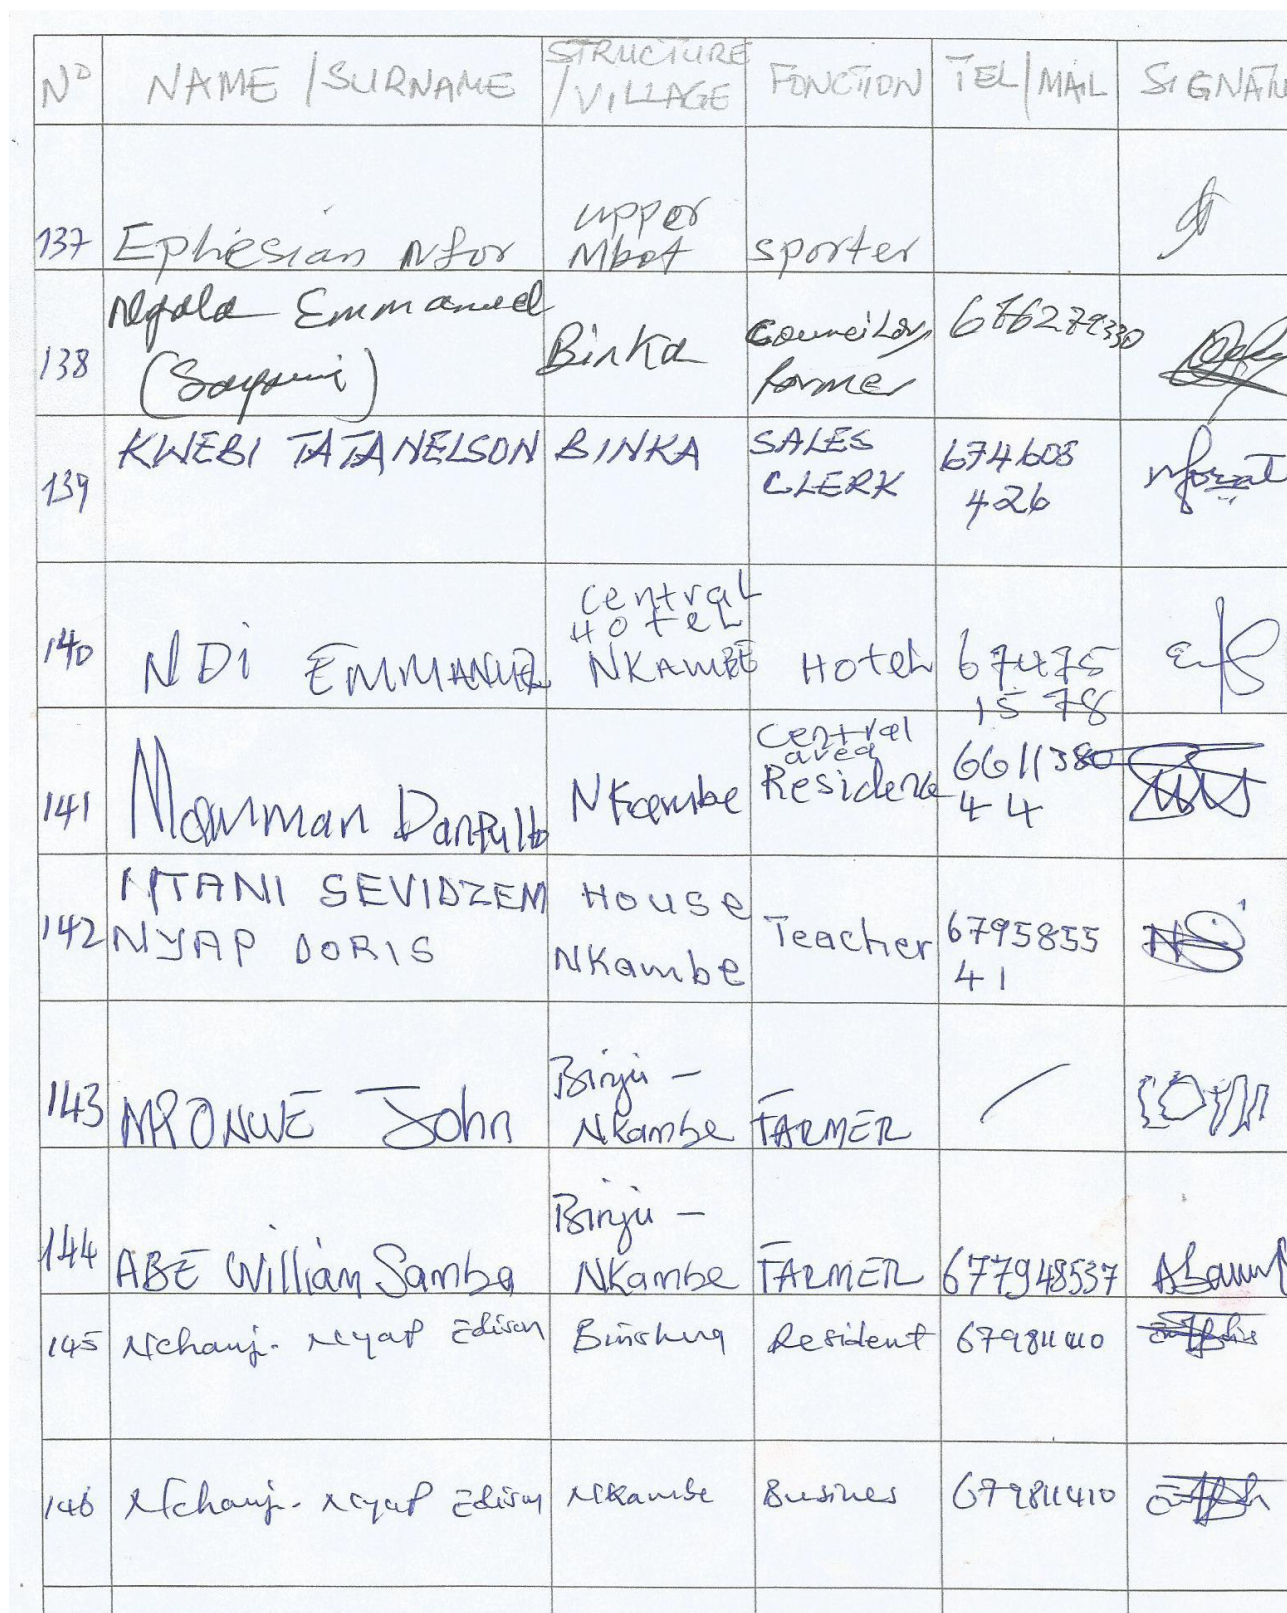 N° NAME / SURNAME STRUCTURE / VILLAGE FONCTION TEL/MAIL SIGNATU
137 Ephesian Nfor upper Mbot sporter
138 Emmanuel Binka Councilor farmer 676279330
139 KWEBI TATA NELSON BINKA SALES CLERK 674603 426
140 NDI EMMANUEL central HOTEL NKAMBE HOTEL 67475 1578
141 Mamman Danpullo NKambe central area Residence 6611380 44
142 NTANI SEVIDZEM NYAP DORIS HOUSE NKambe Teacher 6795855 41
143 John Binju - Nkambe FARMER /
144 ABE William Samba Binju - NKambe FARMER 677948537
145 Nchanji- Nyap Edison Binshua Resident
146 Nchanji- Nyap Edison NKambe Busines 679811410